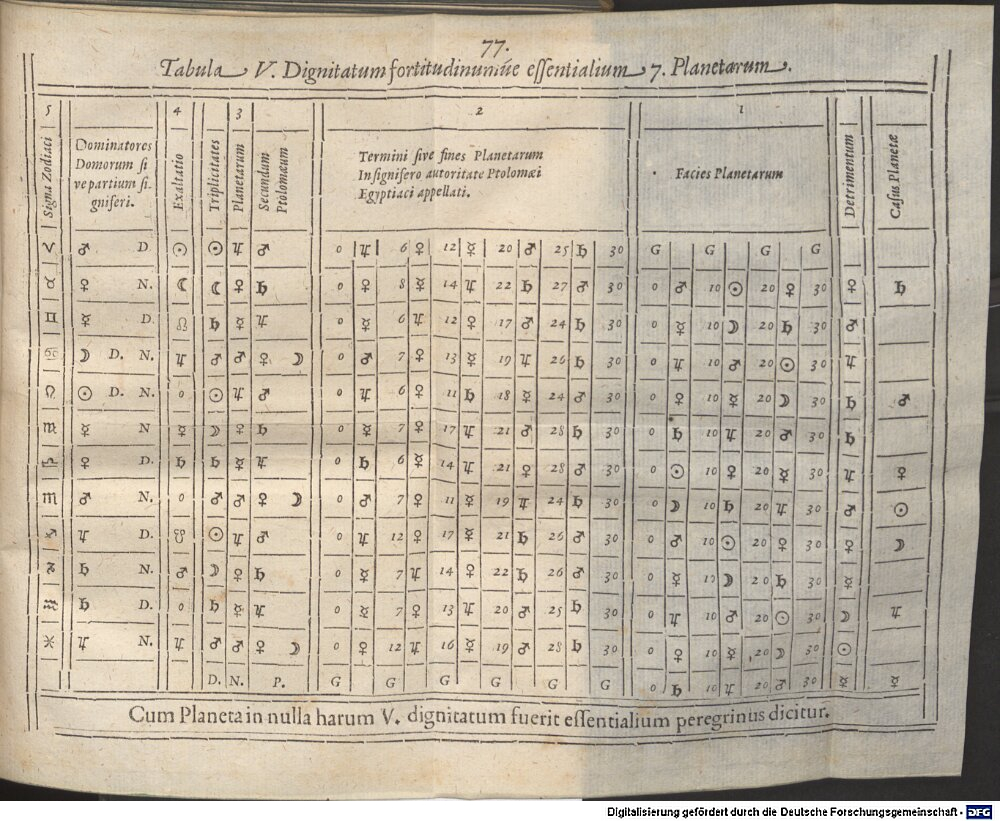 77.
Tabula V. Dignitatum fortitudinumúe eſſentialium 7. Planetarum.
5 4 3 2 1
Signa Zodiaci
Dominatores
Domorum ſi
ve partium ſi.
gniferi.
Exaltatio
Triplicitates
Planetarum
Secundum
Ptolomæum
Termini ſive fines Planetarum
In ſignifero autoritate Ptolomæi
Egyptiaci appellati.
Facies Planetarum
Detrimentum
Caſus Planetæ
♈ ♂ D. ☉ ☉ ♃ ♂ 0 ♃ 6 ♀ 12 ☿ 20 ♂ 25 ♄ 30 G G G G
♉ ♀ N. ☾ ☾ ♀ ♄ 0 ♀ 8 ☿ 14 ♃ 22 ♄ 27 ♂ 30 0 ♂ 10 ☉ 20 ♀ 30 ♀ ♄
♊ ☿ D. ☊ ♄ ☿ ♃ 0 ☿ 6 ♃ 12 ♀ 17 ♂ 24 ♄ 30 0 ☿ 10 ☽ 20 ♄ 30 ♂
♋ ☽ D. N. ♃ ♂ ♂ ♀ ☽ 0 ♂ 7 ♀ 13 ☿ 19 ♃ 26 ♄ 30 0 ♃ 10 ♂ 20 ☉ 30 ♃
♌ ☉ D. N. 0 ☉ ♃ ♂ 0 ♃ 6 ♀ 11 ♄ 18 ☿ 24 ♂ 30 0 ♀ 10 ☿ 20 ☽ 30 ♄ ♂
♍ ☿ N ☿ ☽ ♀ ♄ 0 ☿ 7 ♀ 17 ♃ 21 ♂ 28 ♄ 30 0 ♄ 10 ♃ 20 ♂ 30 ♄
♎ ♀ D. ♄ ♄ ☿ ♃ 0 ♄ 6 ☿ 14 ♃ 21 ♀ 28 ♂ 30 0 ☉ 10 ♀ 20 ☿ 30 ♃ ♀
♏ ♂ N. 0 ♂ ♂ ♀ ☽ 0 ♂ 7 ♀ 11 ☿ 19 ♃ 24 ♄ 30 0 ☽ 10 ♄ 20 ♃ 30 ♂ ☉
♐ ♃ D. ☋ ☉ ♃ ♂ 0 ♃ 12 ♀ 17 ☿ 21 ♄ 26 ♂ 30 0 ♂ 10 ☉ 20 ♀ 30 ♀ ☽
♑ ♄ N. ♂ ☽ ♀ ♄ 0 ☿ 7 ♃ 14 ♀ 22 ♄ 26 ♂ 30 0 ☿ 10 ☽ 20 ♄ 30 ☿
♒ ♄ D. 0 ♄ ☿ ♃ 0 ☿ 7 ♀ 13 ♃ 20 ♂ 25 ♄ 30 0 ♃ 10 ♂ 20 ☉ 30 ☽ ♃
♓ ♃ N. ♃ ♂ ♂ ♀ ☽ 0 ♀ 12 ♃ 16 ☿ 19 ♂ 28 ♄ 30 0 ♀ 10 ☿ 20 ☽ 30 ☉
D. N. P. G G G G G G 0 ♄ 10 ♃ 20 ♂ 30 ☿ ☿
Cum Planeta in nulla harum V. dignitatum fuerit eſſentialium peregrinus dicitur.
Digitalisierung gefördert durch die Deutsche Forschungsgemeinschaft - DFG